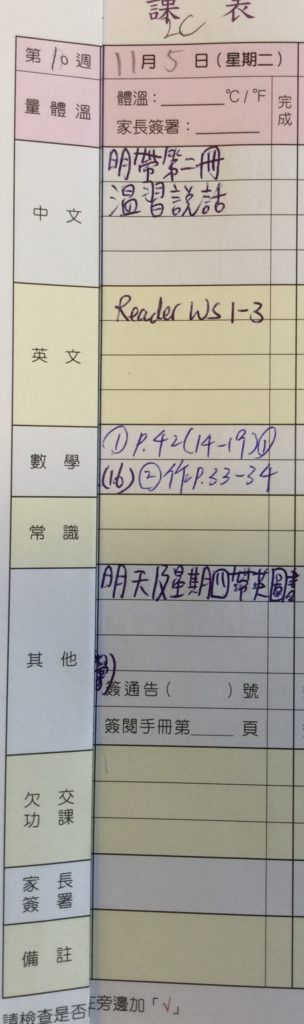 課 表
2C
第 10 週 11 月 5 日(星期二)
量 體 溫 體溫:______ °C/°F 完成
家長簽署:______
中 文 明帶第二冊
溫習說話
英 文 Reader WS 1-3
數 學 ① P.42(14-19)①
(16) ② 作P.33-34
常 識
其 他 明天及星期四帶英圖書
簽通告( )號
簽閱手冊第____ 頁
欠 交 功 課
家 長 簽 署
備 註
請檢查是否
旁邊加「√」